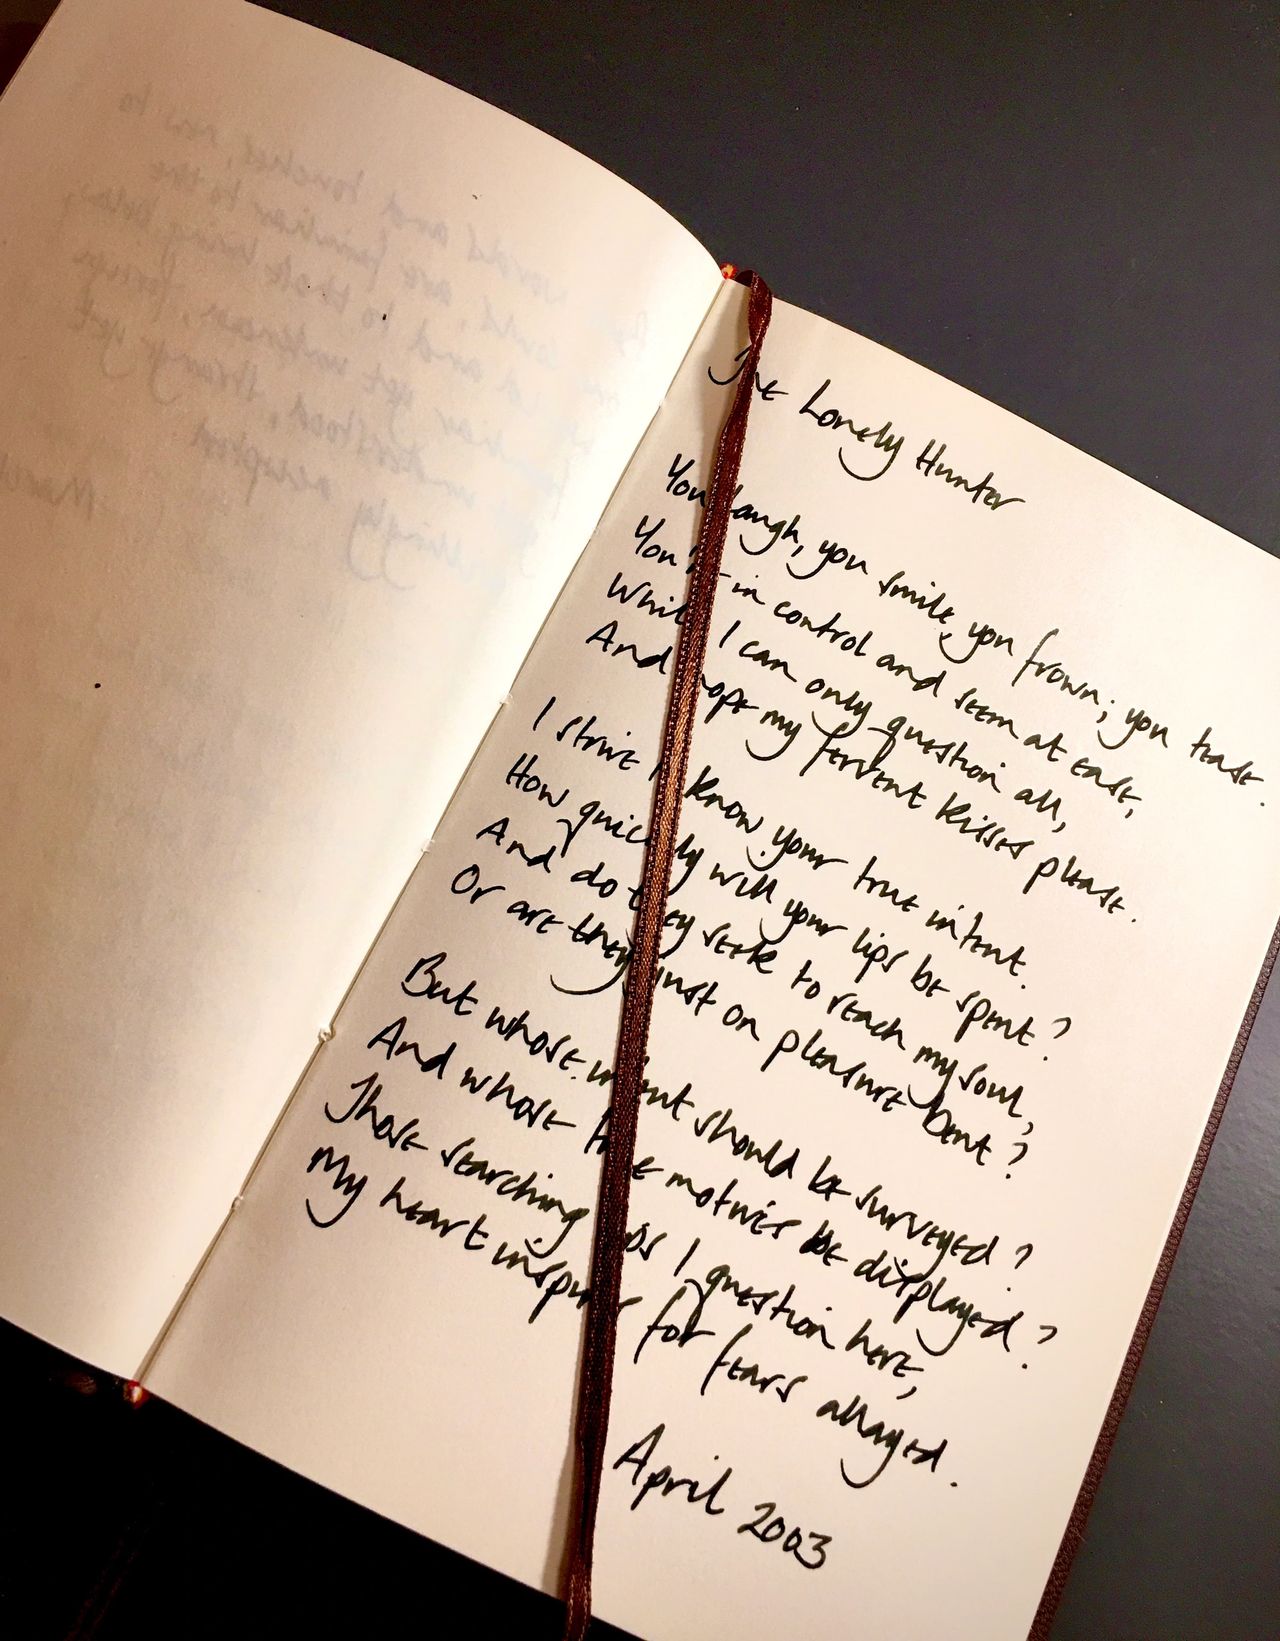 The Lonely Hunter
You laugh, you smile, you frown; you tease.
You're in control and seem at ease,
While I can only question all,
And hope my fervent kisses please.
I strive to know your true intent.
How quickly will your lips be spent?
And do they seek to reach my soul,
Or are they just on pleasure bent?
But whose intent should be surveyed?
And whose true motives be displayed?
Those searching lips I question here,
My heart inspires for fears allayed.
April 2003